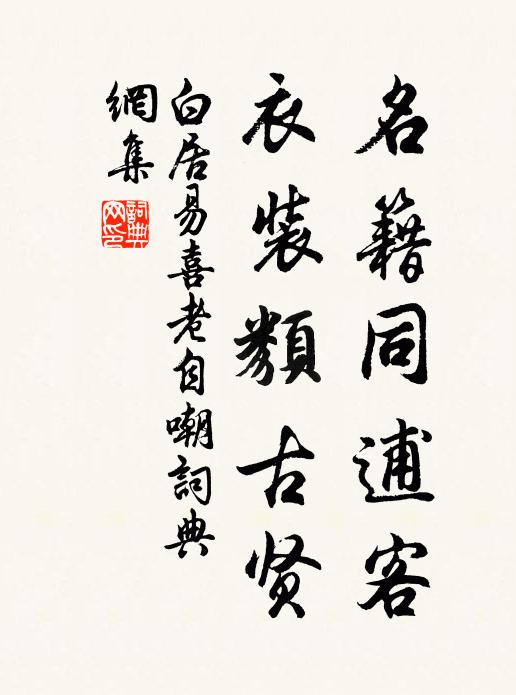 名籍同逋客
衣裝類古贤
白居易喜老自嘲詞典
網集
詞典網印